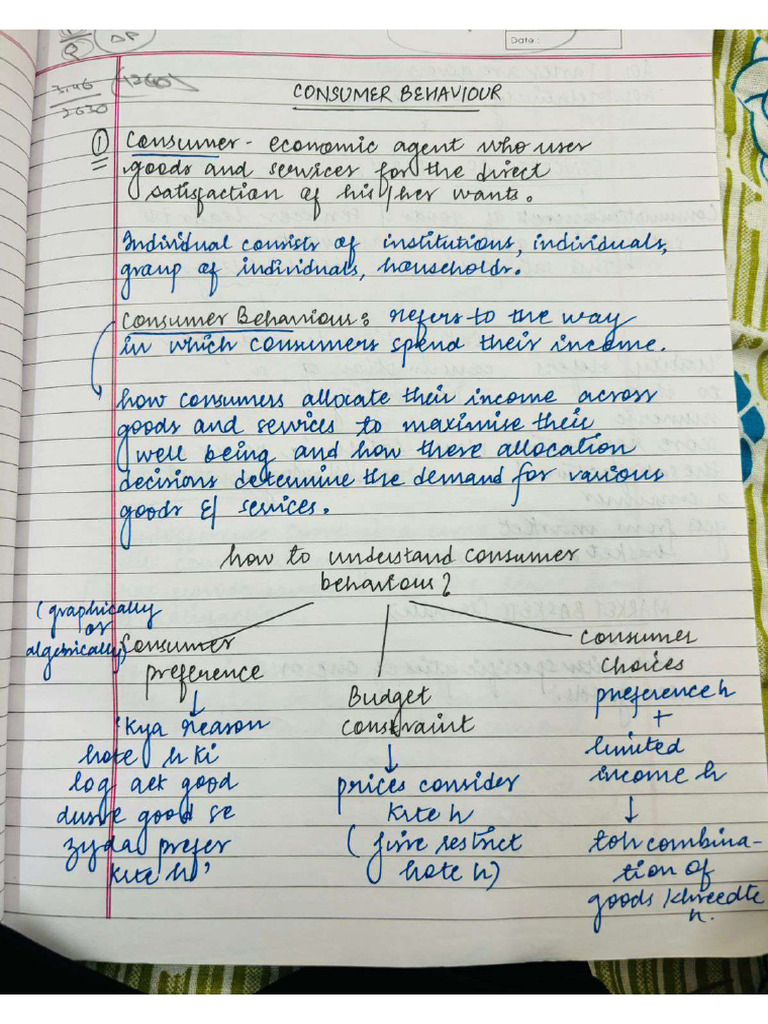 Q ΔP
Date :
3.46 (1260)
2630
CONSUMER BEHAVIOUR
① Consumer - economic agent who uses
goods and services for the direct
satisfaction of his/her wants.
Individual consists of institutions, individuals,
group of individuals, households.
Consumer Behaviour: refers to the way
in which consumers spend their income.
how consumers allocate their income across
goods and services to maximise their
well being and how these allocation
decisions determine the demand for various
goods & services.
how to understand consumer
behaviour?
(graphically
or
algebrically)
Consumer
preference
↓
'Kya reason
hote h ki
log aek good
dusre good se
zyda prefer
krte h'
Budget
constraint
↓
prices consider
krte h
(jinse restrict
hote h)
Consumer
Choices
preference h
+
limited
income h
↓
toh combina-
tion of
goods khreedte
h.